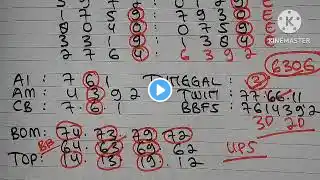 1 7 5 9 7 9 3 0 E
8 0 4 0 0 7 5 9
3 3 1 9 1 3 8 4
2 7 6 4 6 3 9 2
KINEMASTER
6306
AI : 7 6 1 TUNGGAL : 2
AM : 4 3 9 2 TWIN : 77.66.11
CB : 7.6.1 BBFS : 7614392
3D 2D
BOM : 74. 73. 79. 72
BB 64. 63. 69. 62
TOP : 14. 13. 19. 12
UPS